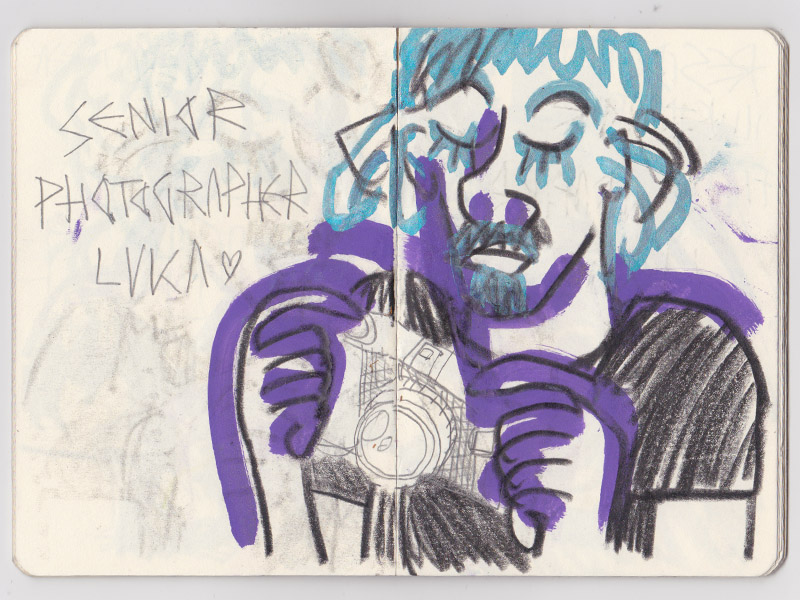 SENIOR
PHOTOGRAPHER
LUKA ♡